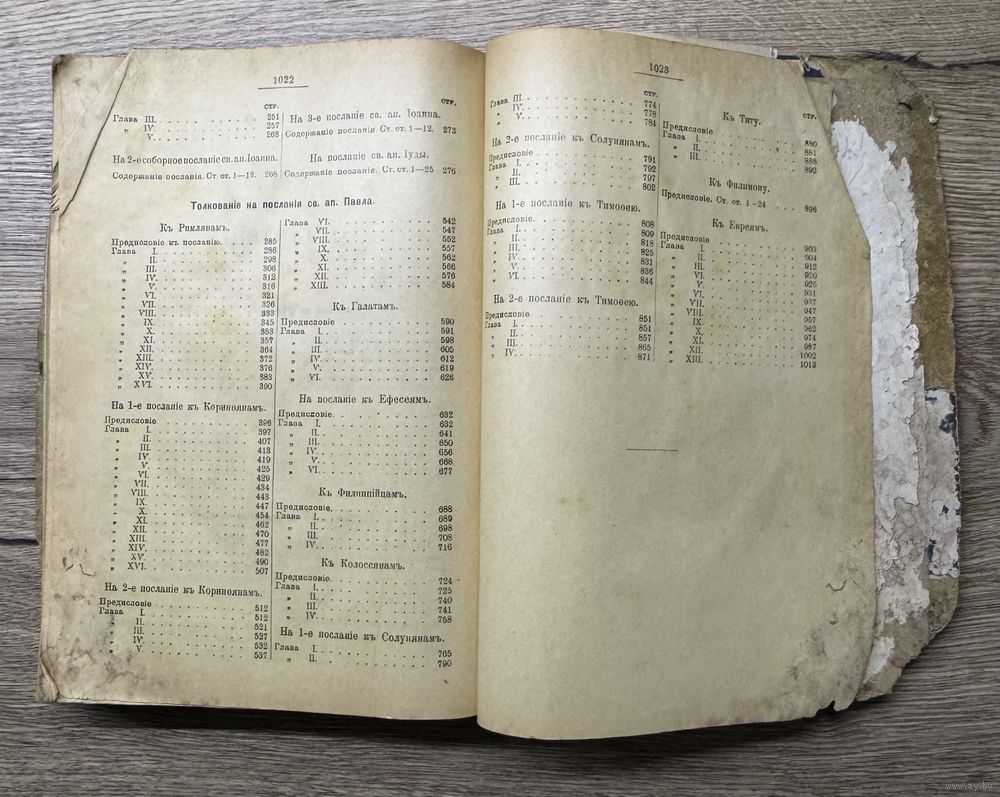 1022
СТР.
Глава III. 251
„ IV. 257
„ V. 263
На 2-е соборное послание св. ап. Іоанна.
Содержаніе посланія. Ст. от. 1—13. 268
СТР.
На 3-е посланіе св. ап. Іоанна.
Содержаніе посланія. Ст. от. 1—12. 273
На посланіе св. ап. Іуды.
Содержаніе посланія. Ст. от. 1—25 276
Толкованіе на посланія св. ап. Павла.
Къ Римлянамъ.
Предисловіе къ посланію. 285
Глава I. 286
„ II. 298
„ III. 306
„ IV. 312
„ V. 316
„ VI. 321
„ VII. 326
„ VIII. 333
„ IX. 345
„ X. 353
„ XI. 357
„ XII. 364
„ XIII. 372
„ XIV. 376
„ XV. 383
„ XVI. 390
На 1-е посланіе къ Коринѳянамъ.
Предисловіе. 396
Глава I. 397
„ II. 407
„ III. 413
„ IV. 419
„ V. 425
„ VI. 429
„ VII. 434
„ VIII. 443
„ IX. 447
„ X. 454
„ XI. 462
„ XII. 470
„ XIII. 477
„ XIV. 482
„ XV. 490
„ XVI. 507
На 2-е посланіе къ Коринѳянамъ.
Предисловіе 512
Глава I. 512
„ II. 521
„ III. 527
„ IV. 532
„ V. 537
Глава VI. 542
„ VII. 547
„ VIII. 552
„ IX. 557
„ X. 562
„ XI. 566
„ XII. 576
„ XIII. 584
Къ Галатамъ.
Предисловіе 590
Глава I. 591
„ II. 598
„ III. 605
„ IV. 612
„ V. 619
„ VI. 626
На посланіе къ Ефесеямъ.
Предисловіе. 632
Глава I. 632
„ II. 641
„ III. 650
„ IV. 656
„ V. 668
„ VI. 677
Къ Филиппійцамъ.
Предисловіе. 688
Глава I. 689
„ II. 698
„ III. 708
„ IV. 716
Къ Колоссянамъ.
Предисловіе. 724
Глава I. 725
„ II. 740
„ III. 741
„ IV. 758
На 1-е посланіе къ Солунянамъ.
Глава I. 765
„ II. 790
1023
СТР.
Глава III. 774
„ IV. 778
„ V. 784
На 2-е посланіе къ Солунянамъ.
Предисловіе 791
Глава I. 792
„ II. 797
„ III. 802
На 1-е посланіе къ Тимоѳею.
Предисловіе. 808
Глава I. 809
„ II. 818
„ III. 825
„ IV. 831
„ V. 836
„ VI. 844
На 2-е посланіе къ Тимоѳею.
Предисловіе 851
Глава I. 851
„ II. 857
„ III. 865
„ IV. 871
СТР.
Къ Титу.
Предисловіе 880
Глава I. 881
„ II. 888
„ III. 892
Къ Филимону.
Предисловіе. Ст. от. 1-24 896
Къ Евреямъ.
Предисловіе 903
Глава I. 904
„ II. 912
„ III. 920
„ IV. 925
„ V. 931
„ VI. 937
„ VII. 947
„ VIII. 957
„ IX. 962
„ X. 974
„ XI. 987
„ XII. 1002
„ XIII. 1013
www.ay.by